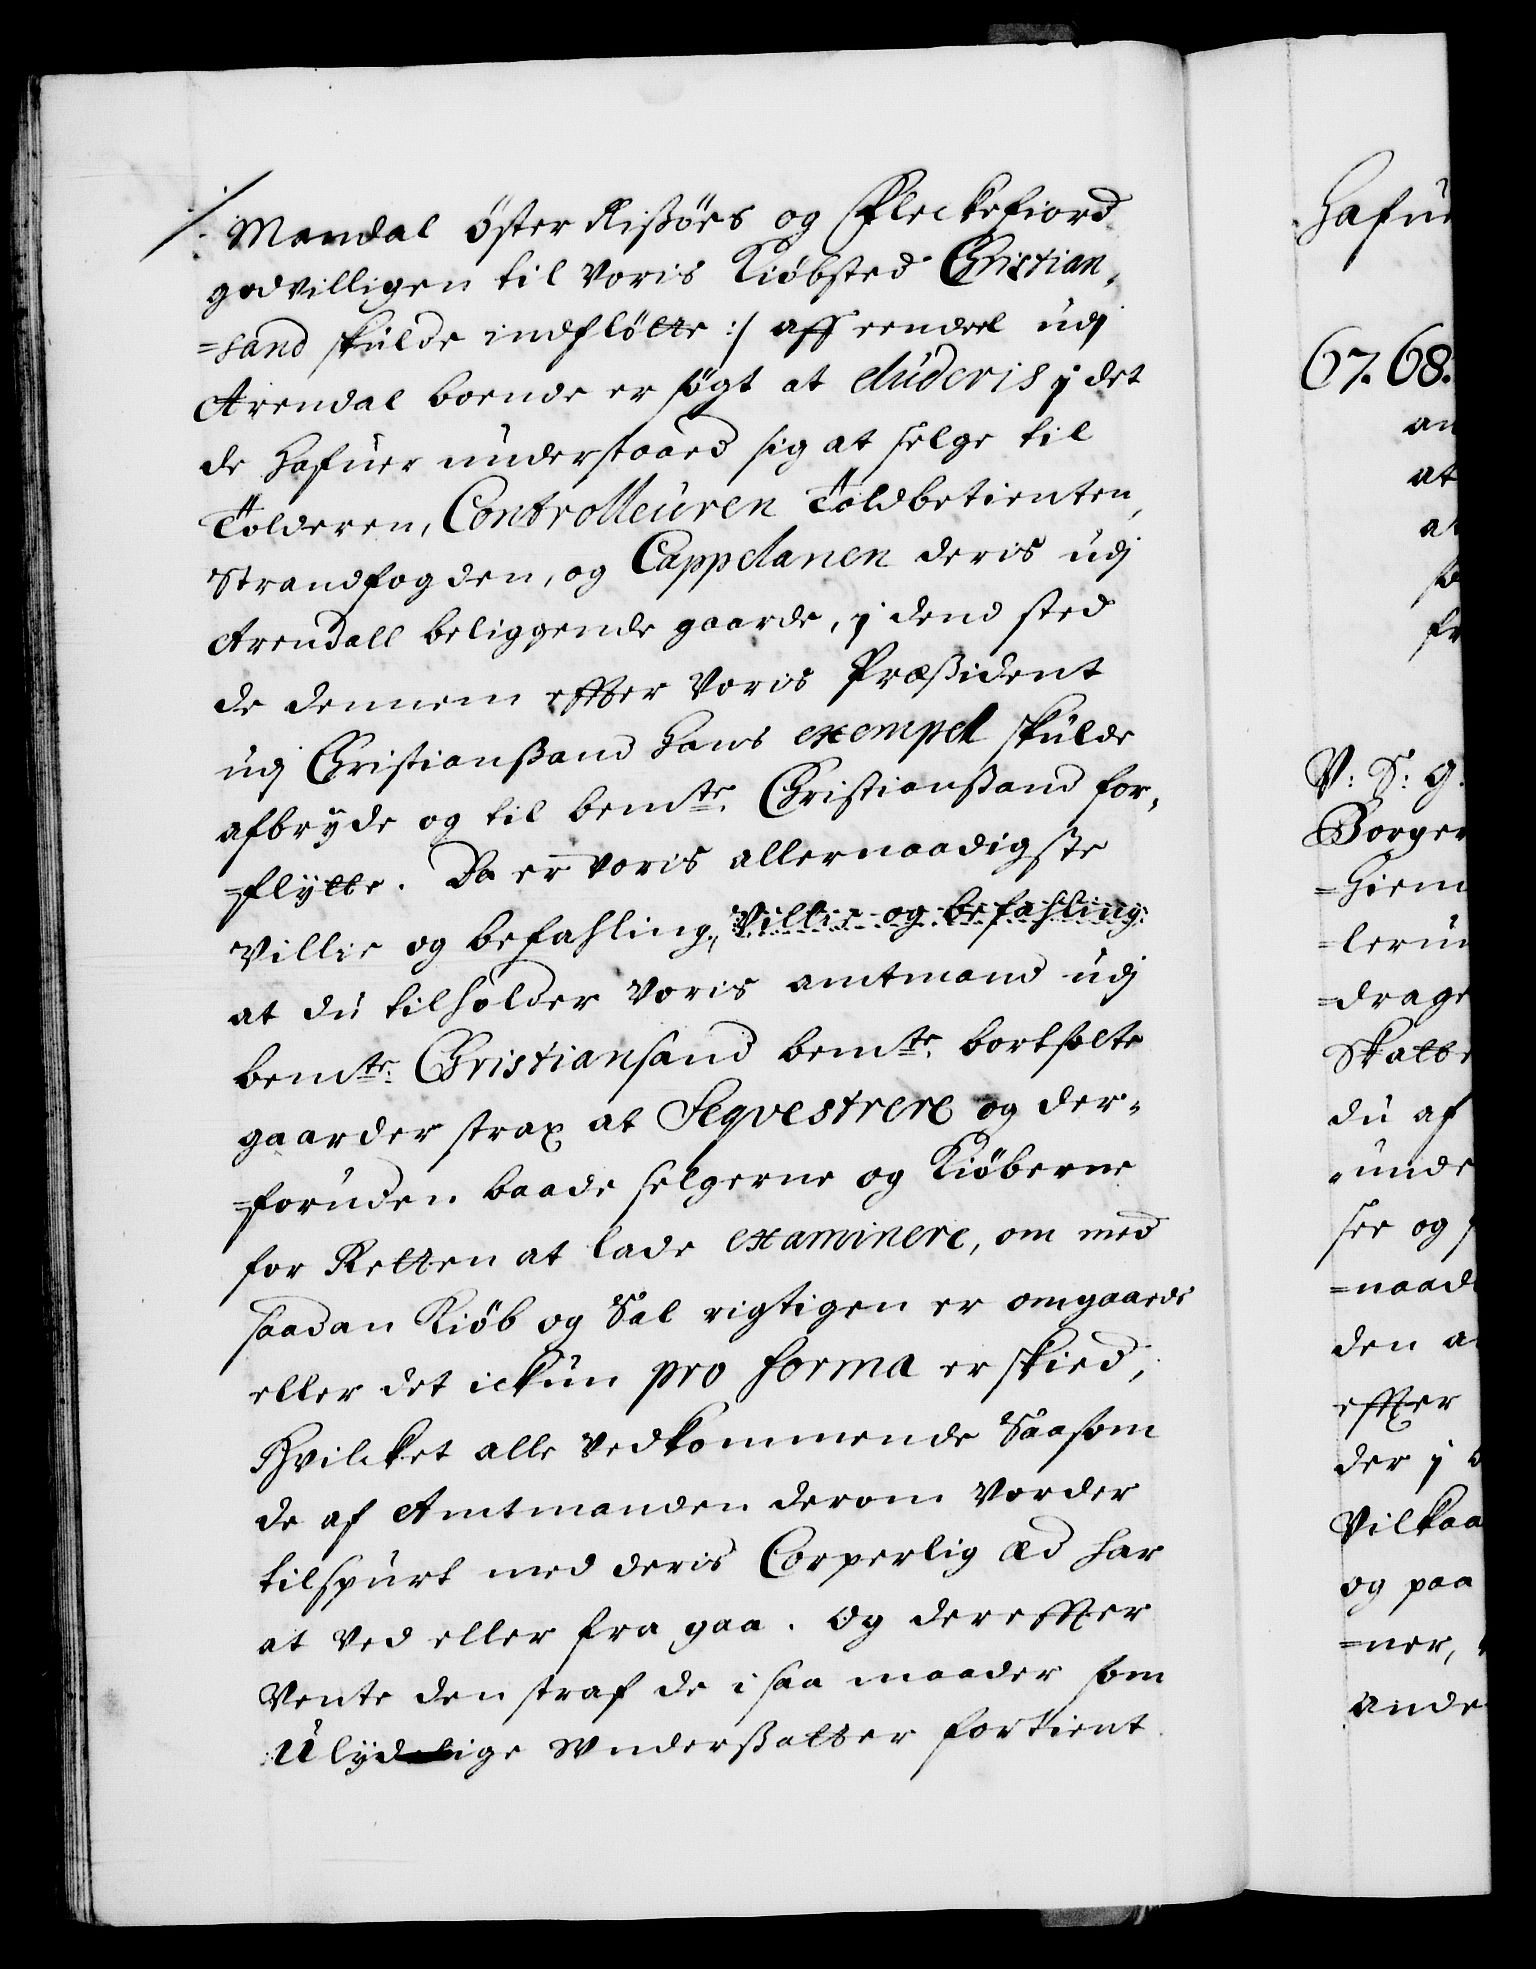 /: Mandal öster Rißöes og Fleckefiord
godvilligen til voris Kiöbsted Christian,
=sand skulde indflötte :/ aff eendeel udj
Arendal boende er søgt at eluderis j det
de hafuer understaaed sig at selge til
Tolderen, Controlleuren Toldbetienten,
Strandfogden, og Cappelanen deris udj
Arendall beliggende gaarde, j dend sted
de dennem effter voris Præßident
udj Christianßand hans exempel skulde
afbryde og til bemte Christianßand for,
=flÿtte. Da er voris allernaadigste
Villie og befahling, Villie og befahling
at du tilholder voris amtmand udj
bemte Christiansand bemte bortsolte
gaarder strax at Seqvestrere og der=
=foruden baade selgerne og Kiöberne
for Retten at lade examinere, om med
saadan Kiöb og Sal rigtigen er omgaaede
eller det ickun pro forma er skied,
Hvilcket alle vedkommende Saasom
de af Amtmanden derom vorder
tilspurt med deris Corperlig æd har
at ved eller fra gaa. Og dereffter
vente den straf de i saa maader som
Ulÿdige Underßatter fortient
Hafue
67. 68.
an
at
V: S: G.
Borger
=hiem
=drage
Skatte
du af
=unde
see og
=naad
den a
effter
der j
Vilkaa
og paa
=ner,
ande